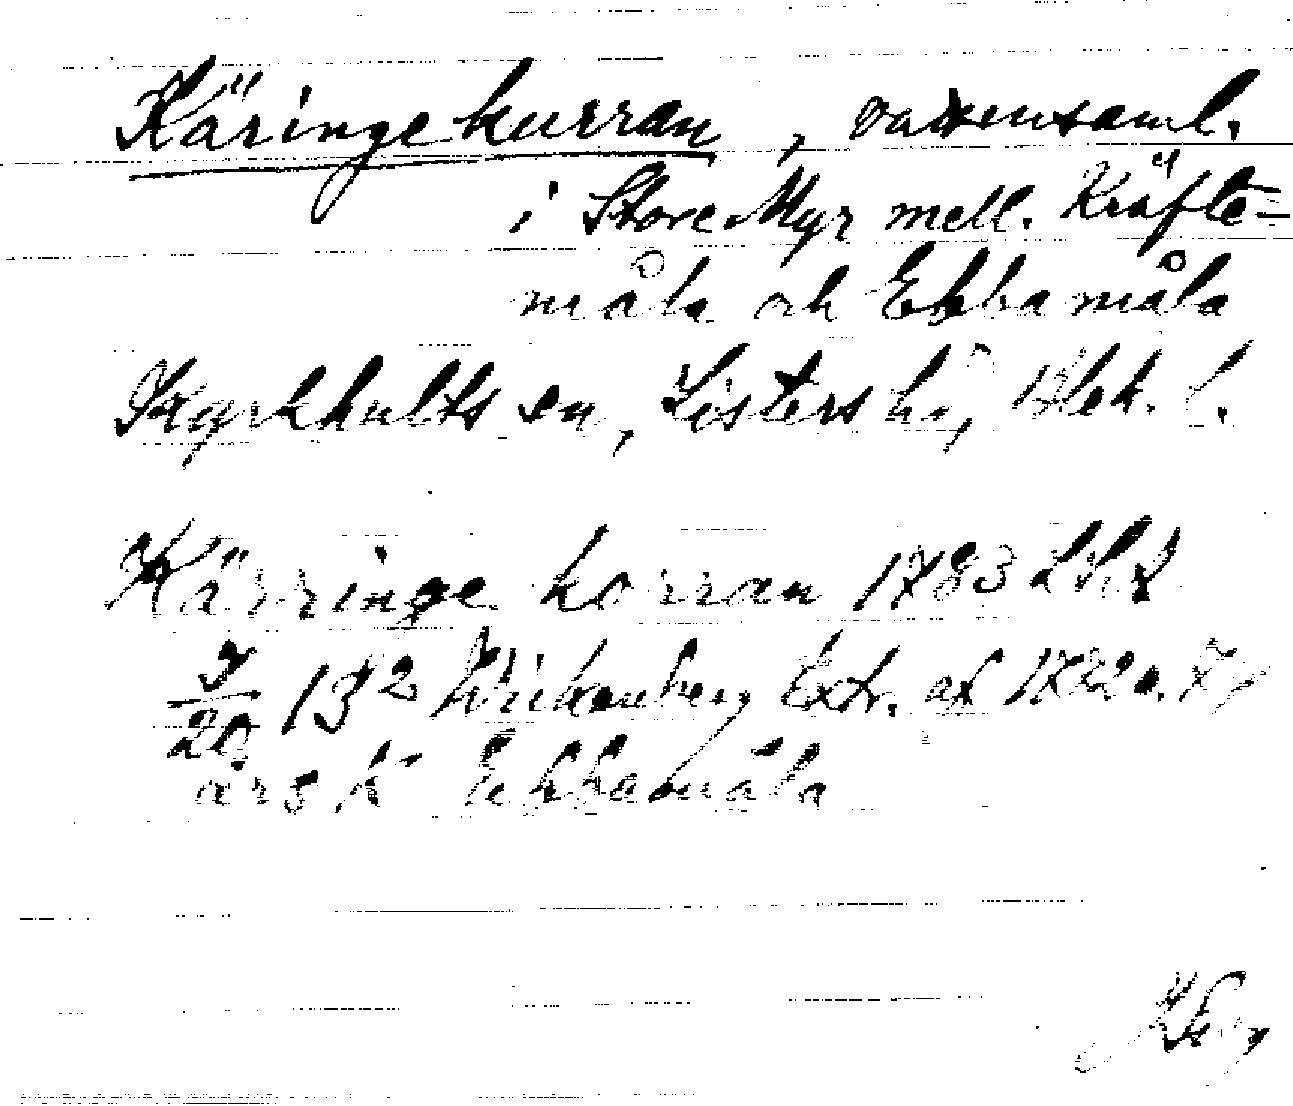 Käringekurran, vattensaml.
i Store Myr mell. Kräfte-
måla och Ebbamåla
Kyrkhults sn, Listers hd, Blek. l.
Kärringe korran 1783 LHK
9/20 132 Wickenberg Extr. af 1782 o.
års K Ebbamåla